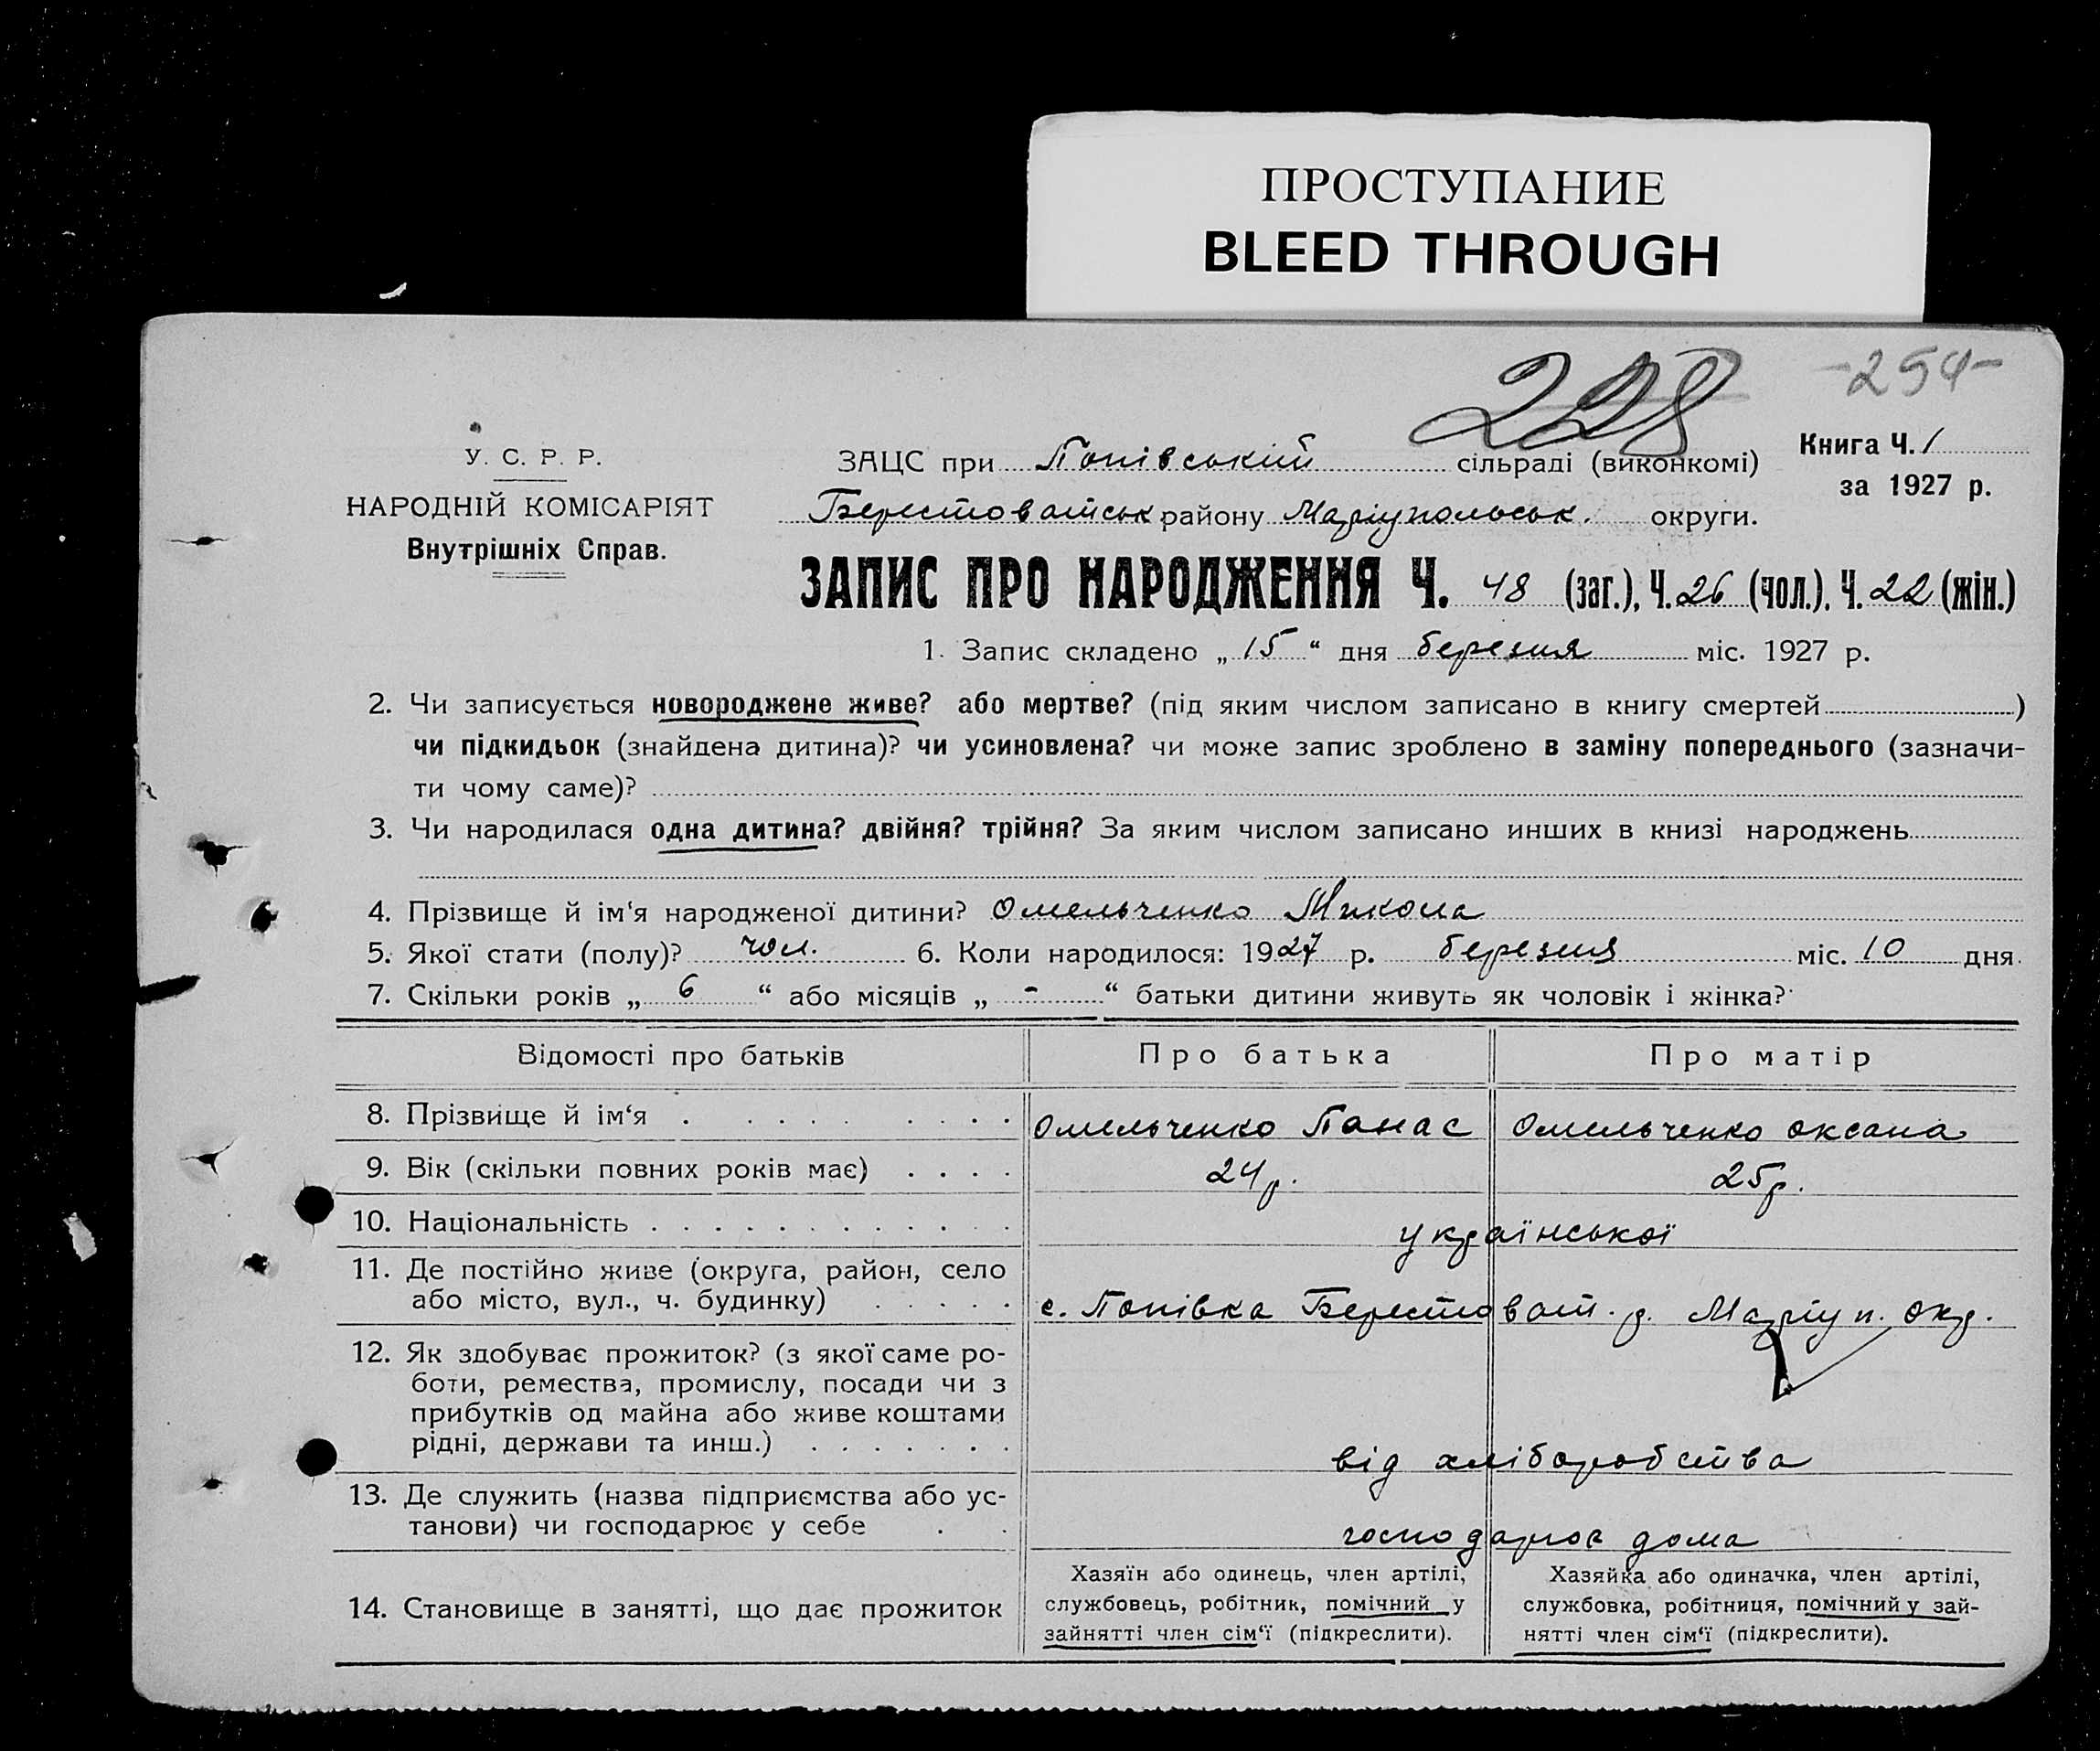 ПРОСТУПАНИЕ
BLEED THROUGH
228
-254-
У. С. Р. Р.
НАРОДНІЙ КОМІСАРІЯТ
Внутрішніх Справ.
ЗАЦС при Попівський сільраді (виконкомі)
Берестоватськ району Маріупольськ. округи.
Книга Ч. 1
за 1927 р.
ЗАПИС ПРО НАРОДЖЕННЯ Ч. 48 (заг.), Ч. 26 (чол.), Ч. 22 (жін.)
1. Запис складено „ 15 “ дня березня міс. 1927 р.
2. Чи записується новороджене живе? або мертве? (під яким числом записано в книгу смертей )
чи підкидьок (знайдена дитина)? чи усиновлена? чи може запис зроблено в заміну попереднього (зазначи-
ти чому саме)?
3. Чи народилася одна дитина? двійня? трійня? За яким числом записано инших в книзі народжень
4. Прізвище й ім‘я народженої дитини? Омельченко Микола
5. Якої стати (полу)? чол. 6. Коли народилося: 1927 р. березня міс. 10 дня
7. Скільки років „ 6 “ або місяців „ - “ батьки дитини живуть як чоловік і жінка?
Відомості про батьків Про батька Про матір
8. Прізвище й ім‘я Омельченко Панас Омельченко Оксана
9. Вік (скільки повних років має) 24 р. 25 р.
10. Національність української
11. Де постійно живе (округа, район, село
або місто, вул., ч. будинку) с. Попівка Берестоват. р. Маріуп. окр.
12. Як здобуває прожиток? (з якої саме ро-
боти, ремества, промислу, посади чи з
прибутків од майна або живе коштами
рідні, держави та инш.) від хліборобства
13. Де служить (назва підприємства або ус-
танови) чи господарює у себе господарює дома
14. Становище в занятті, що дає прожиток
Хазяїн або одинець, член артілі,
службовець, робітник, помічний у
зайнятті член сім‘ї (підкреслити).
Хазяйка або одиначка, член артілі,
службовка, робітниця, помічний у зай-
нятті член сім‘ї (підкреслити).